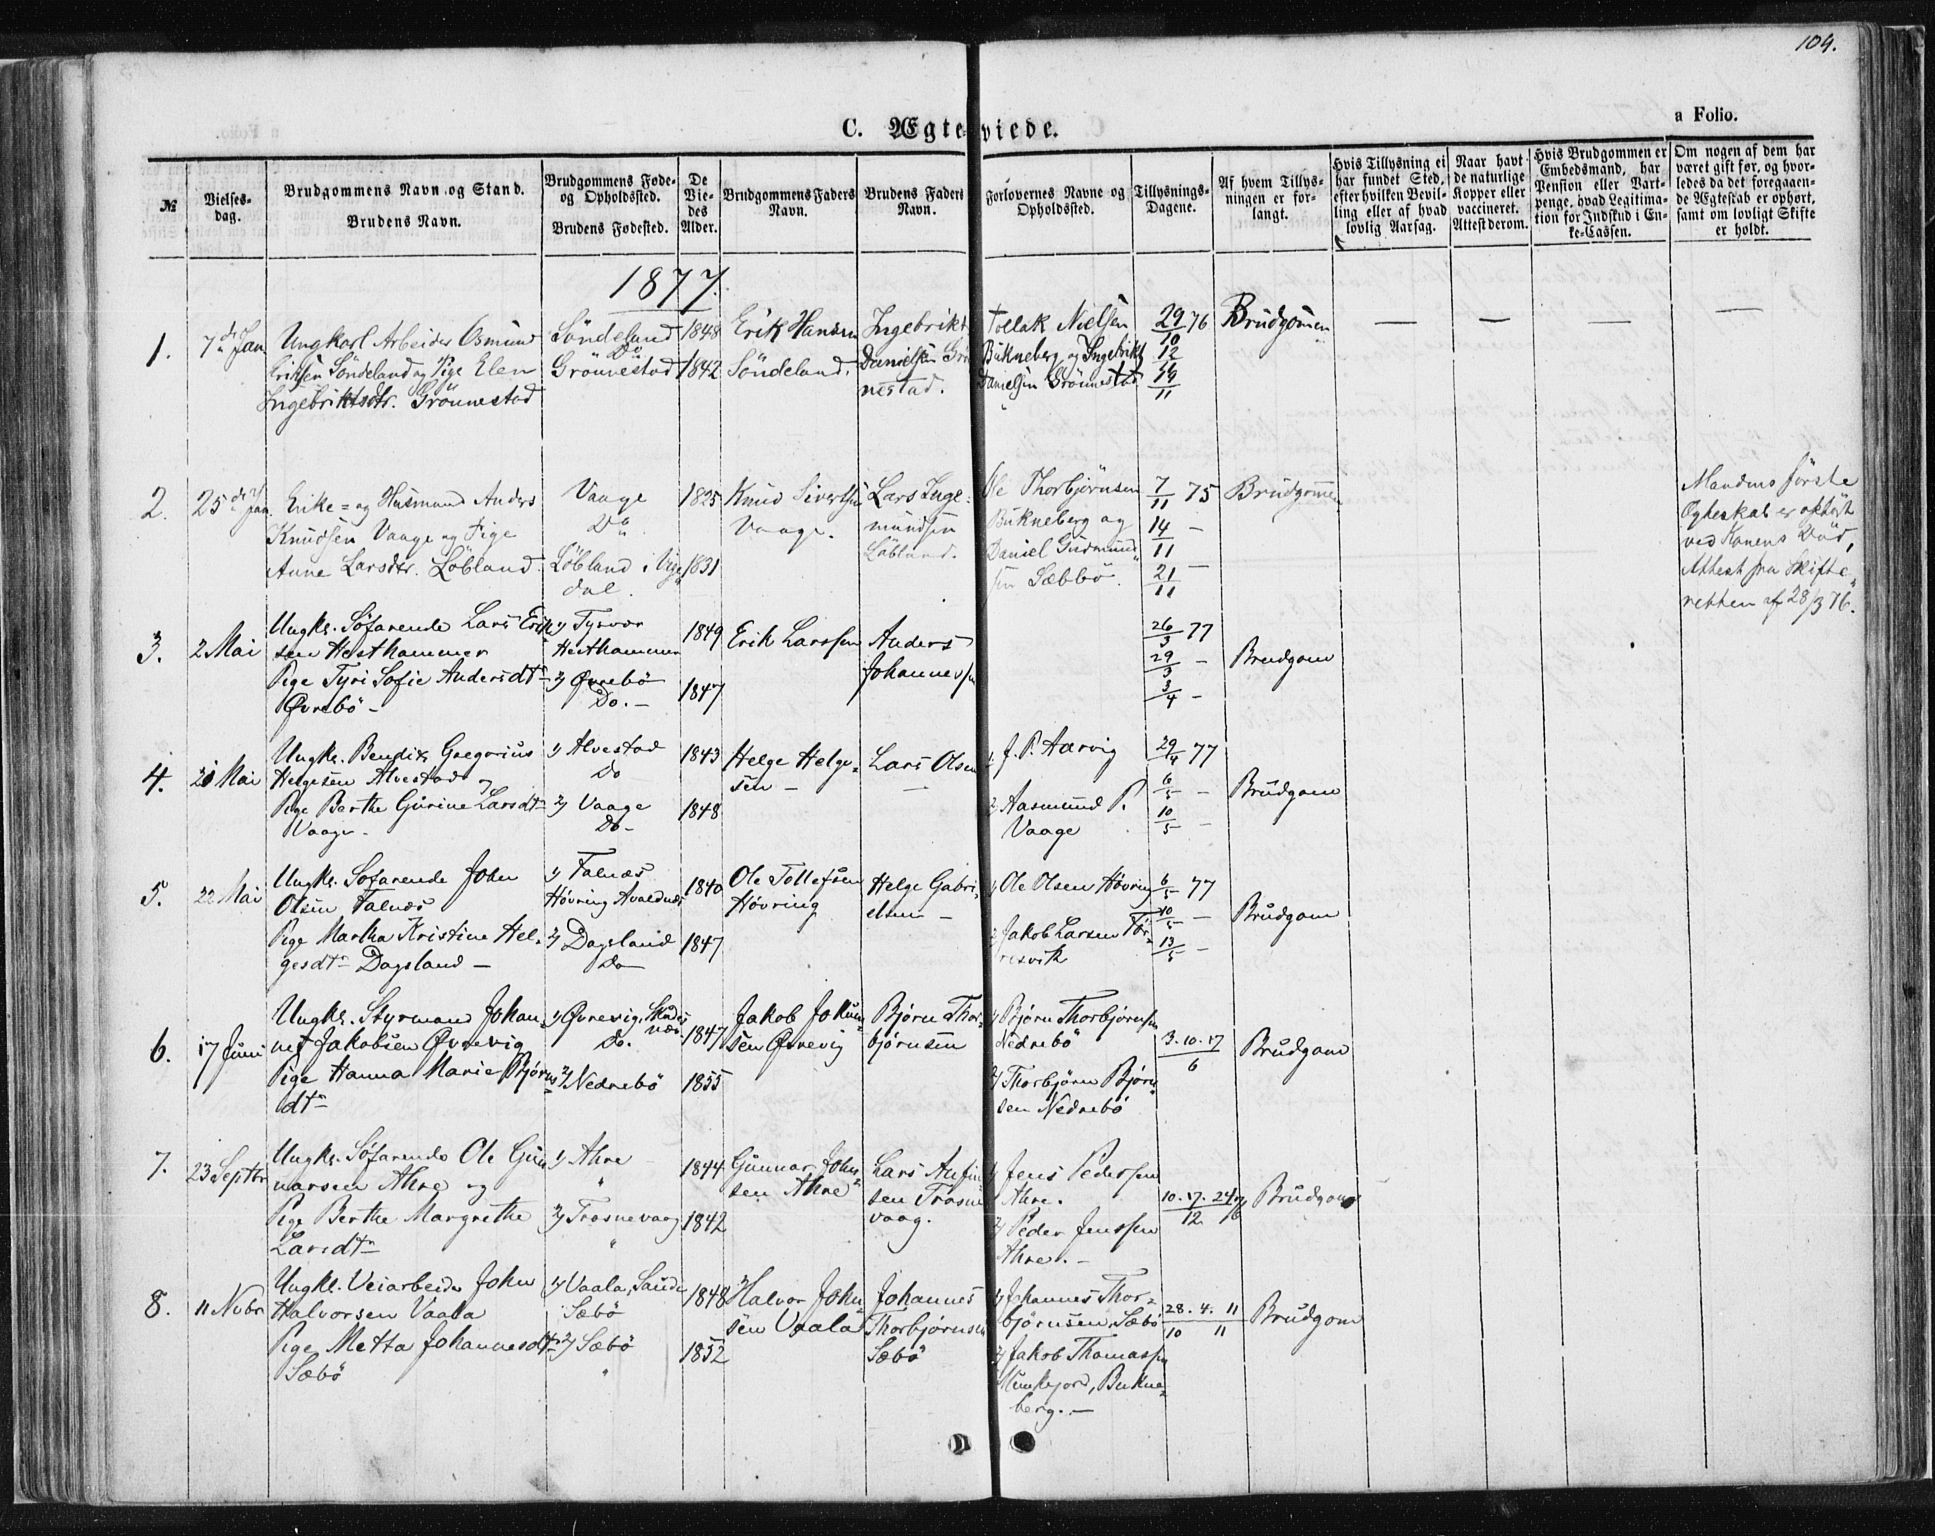 104.
C. Ægteviede.
a Folio.
№
Vielses-
dag.
Brudgommens Navn og Stand.
Brudens Navn.
Brudgommens Føde-
og Opholdssted.
Brudens Fødested.
De
Vie-
des
Alder.
Brudgommens Faders
Navn.
Brudens Faders
Navn.
Forlovernes Navne og
Opholdssted.
Tillysnings-
Dagene.
Af hvem Tillys-
ningen er for-
langt.
Hvis Tillysning ei
har fundet Sted,
efter hvilken Bevil-
ling eller af hvad
lovlig Aarsag.
Naar havt
de naturlige
Kopper eller
vaccineret.
Attest derom.
Hvis Brudgommen er
Embedsmand, har
Pension eller Vart-
penge, hvad Legitima-
tion for Indskud i En-
ke-Cassen.
Om nogen af dem har
været gift før, og hvor-
ledes da det foregaaen-
de Ægteskab er ophørt,
samt om lovligt Skifte
er holdt.
1877.
1.
7de Jan
Ungkarl Arbeider Osmund
Eriksen Söndeland og Pige Elen
Ingebriktsdtr. Grönnestad
Söndeland
Do
Grönnestad
1848
1842
Erik Hansen
Söndeland.
Ingebrikt
Danielsen Grön
nestad.
Tollak Nielsen
Bukneberg og Ingebrikt
Danielsen Grönnestad
29/10 76
12/11
19/11
Brudgommen
— — — —
2.
25de Jan
Enke= og Husmand Anders
Knudsen Vaage og Pige
Anne Larsdtr. Löbland
Vaage
Do
Löbland i Vige
dal.
1825
1831
Knud Sivertsen
Vaage.
Lars Inge=
mundsen
Löbland.
Ole Thorbjörnsen
Bukneberg og
Daniel Gudmund
sen Sæbbö.
7/11 75
14/11 —
21/11 —
Brudgommen
Mandens förste
Egteskab er ophört
ved Konens Död,
Attest fra Skifte
retten af 28/3 76.
3.
2 Mai
Ungk. Söfarende Lars Erik
sen Hesthammer
Pige Tyri Sofie Andersdtr
Øvrebö —
1) Tysvær
Hesthammer
2) Øvrebö
Do. —
1849
1847
Erik Larssen
Anders
Johannessen
26/3 77
29/3 —
3/4 —
Brudgom
4.
21 Mai
Ungk. Bendix Gregorius
Helgesen Alvestad og
Pige Berthe Gurine Larsdtr
Vaage —
1) Alvestad
Do
2) Vaage
Do —
1843
1848
Helge Helge=
sen —
Lars Olsen
—
1 J. P. Aarvig
2 Aasmund P.
Vaage
29/4 77
6/5 —
10/5 —
Brudgom
5.
22 Mai
Ungk. Søfarende John
Olsen Falnæs
Pige Martha Kristine Hel=
gesdtr Dagsland —
1) Falnæs
Høvring Avaldnæs
2) Dagsland
Do
1840
1847
Ole Tollefsen
Høvring
Helge Gabri=
elsen —
1 Ole Olsen Høvring
2 Jakob Larsen Tør=
resvik
6/5 77
10/5 —
13/5 —
Brudgom
6.
17 Juni
Ungk. Styrmand Johan=
nes Jakobsen Øvrevig
Pige Hanna Marie Bjørns
dtr
1) Øvrevig, Skudes
næs
Do.
2) Nedrebö
1847
1855
Jakob Jokum=
sen Øvrevig
Bjørn Thor=
bjørnsen
1) Bjørn Thorbjørnsen
Nedrebö
2) Thorbjörn Björn
sen Nedrebö
3. 10. 17
6
Brudgom
7.
23 Septbr
Ungk. Søfarende Ole Gun
narsen Ahre og
Pige Berthe Margrethe
Larsdtr
1) Ahre
"
2) Trosnevaag
"
1844
1842
Gunnar John=
sen Ahre
Lars Anfin
sen Trosne
vaag.
1) Jens Pedersen
Ahre.
2) Peder Jenssen
Ahre. —
10. 17. 24/76
12
Brudgom
8.
11 Nvbr
Ungk. Veiarbeider John
Halvorsen Vaala
Pige Metta Johannesdtr
Sæbö
1) Vaala, Sande
Sæbö
2) Sæbö
"
1848
1852
Halvor John=
sen Vaala
Johannes
Thorbjørnsen
Sæbö
1) Johannes Thor=
bjørnsen, Sæbö
2) Jakob Thomassen
Munkejord, Bukne=
berg. —
28. 4. 11
10 11
Brudgom